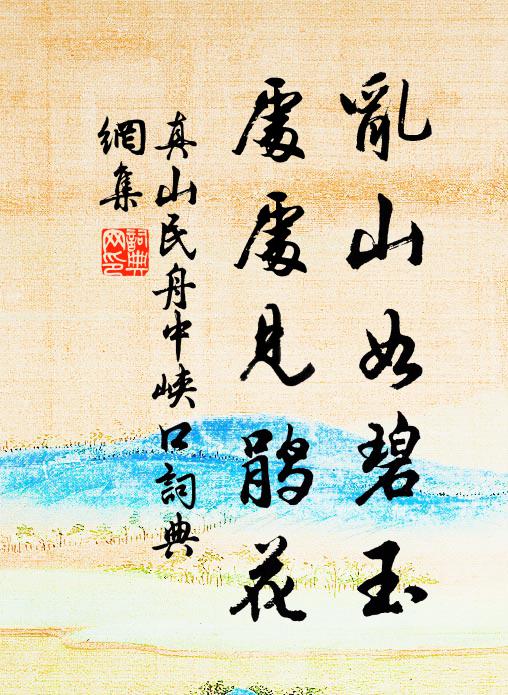 亂山如碧玉
處處見鵑花
真山民舟中峽口詞典
網集
詞典
网印